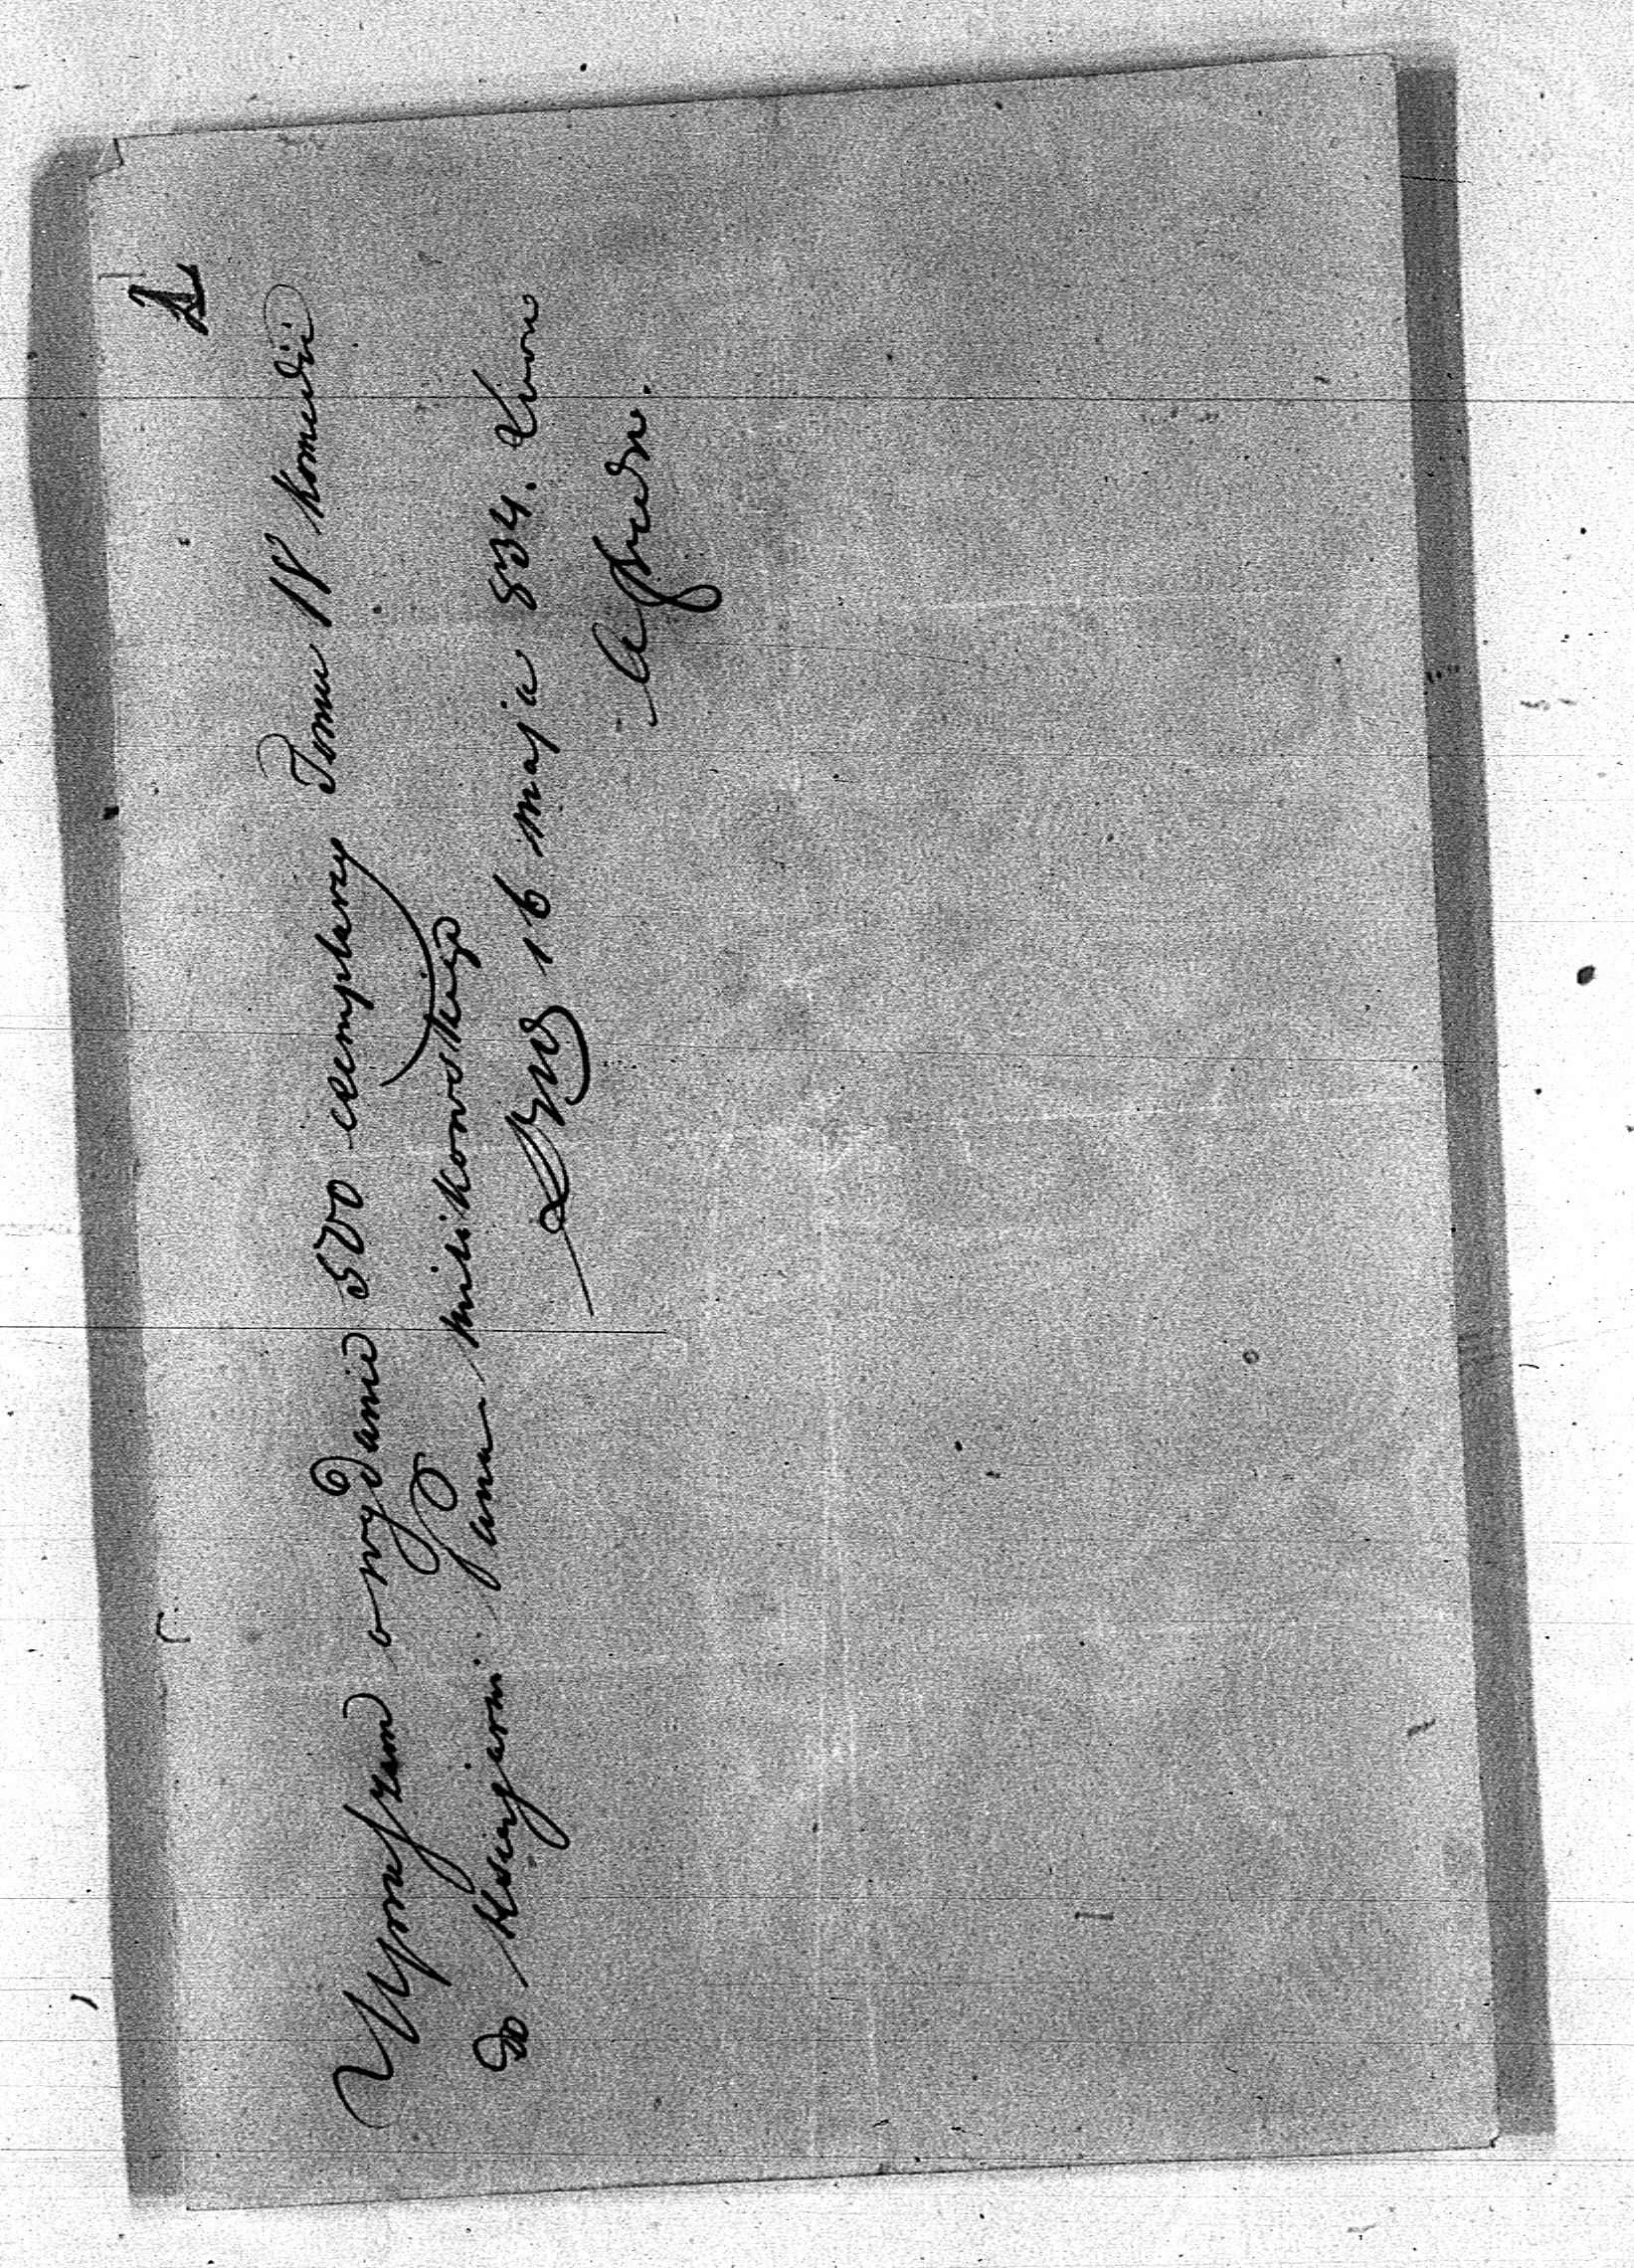 Upraszam o wydanie 500 exemplarzy Tomu IV Komedii
do Księgarni Pana Milikowskiego
16 maja 834. Lwow
AFredro.